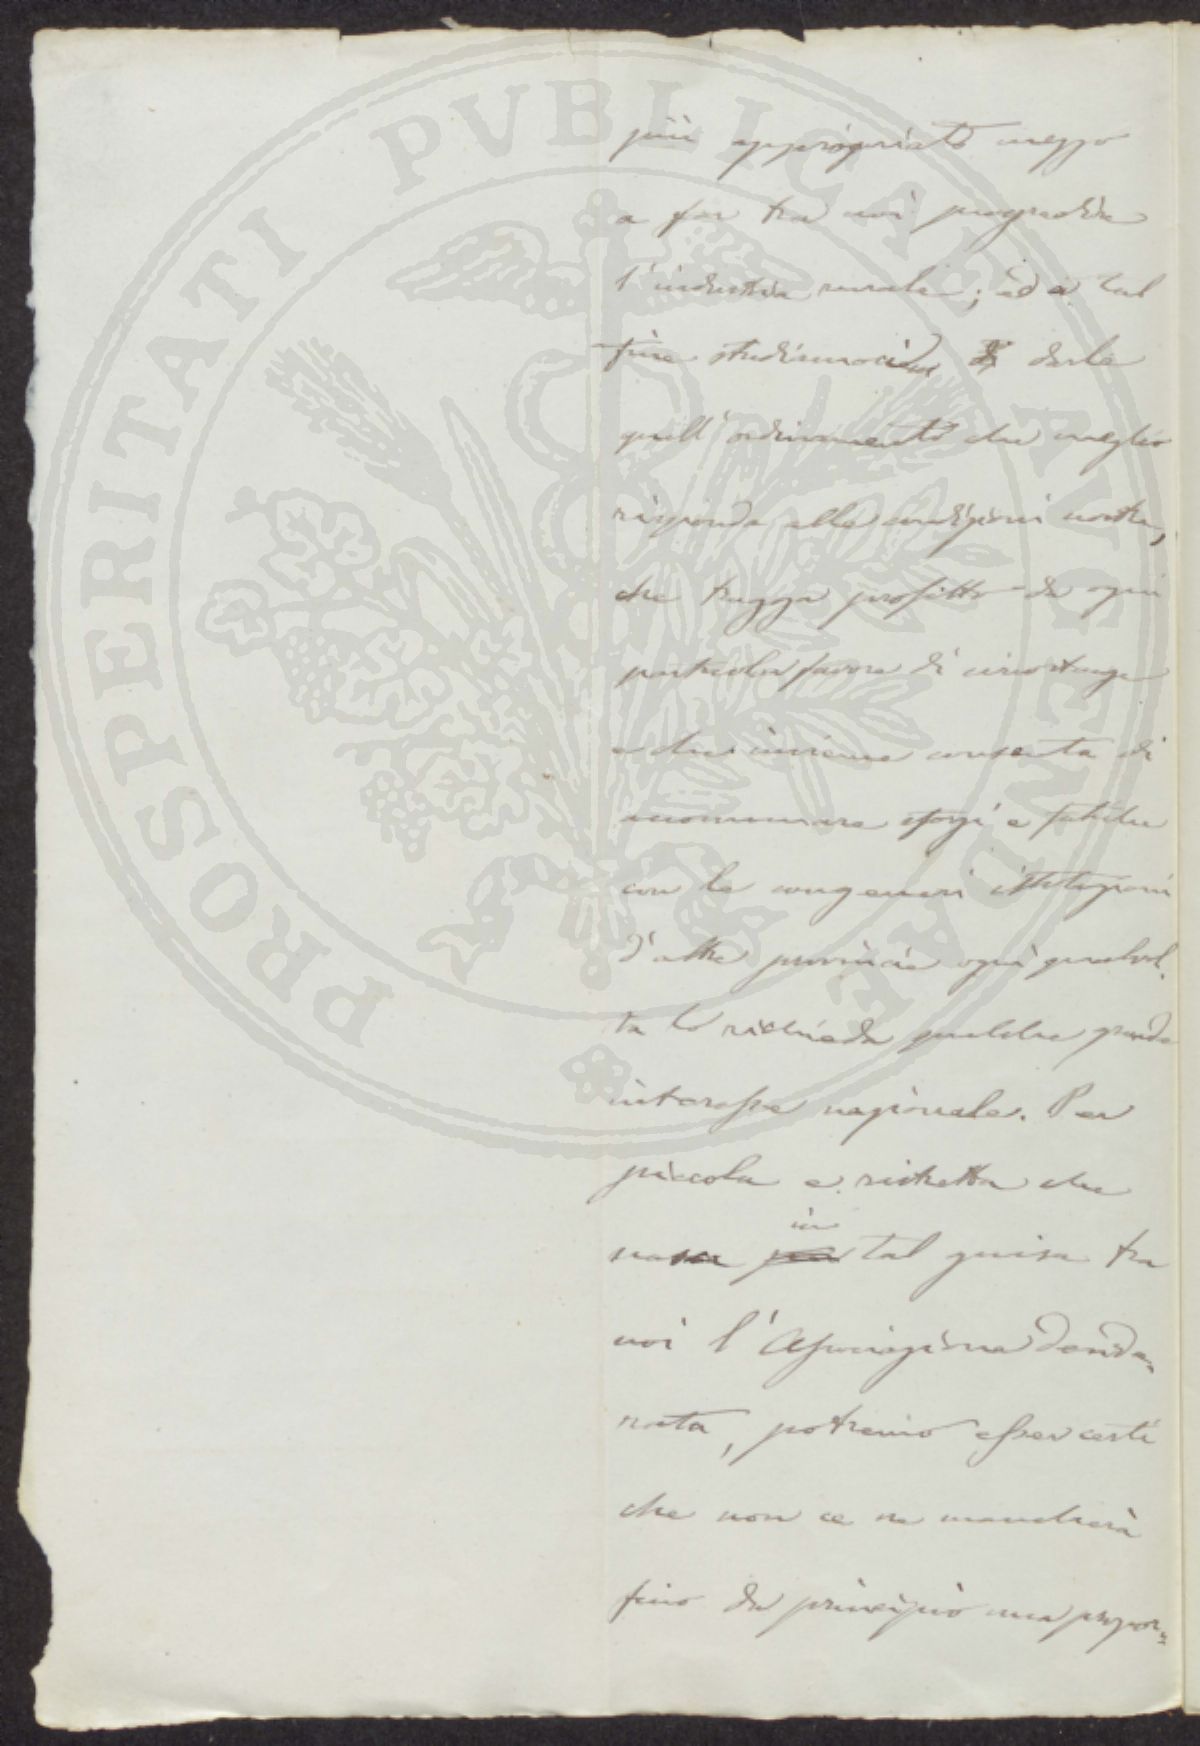 PROSPERITATI PVBLICAE AVGENDAE
più appropriato mezzo
a far tra noi progredire
l'industria rurale; ed a tal
fine studiamoci di darle
quell'ordinamento che meglio
risponda alle condizioni nostre,
che tragga profitto da ogni
particolar favore di circostanze
e che insieme consenta di
accomunare sforzi e fatiche
con le congeneri istituzioni
d'altre provincie ogni qualvol-
ta lo richieda qualche grande
interesse nazionale. Per
piccola e ristretta che
nasca in tal guisa tra
noi l'Associazione deside-
rata, potremo esser certi
che non ce ne mancherà
fino da principio una propor-